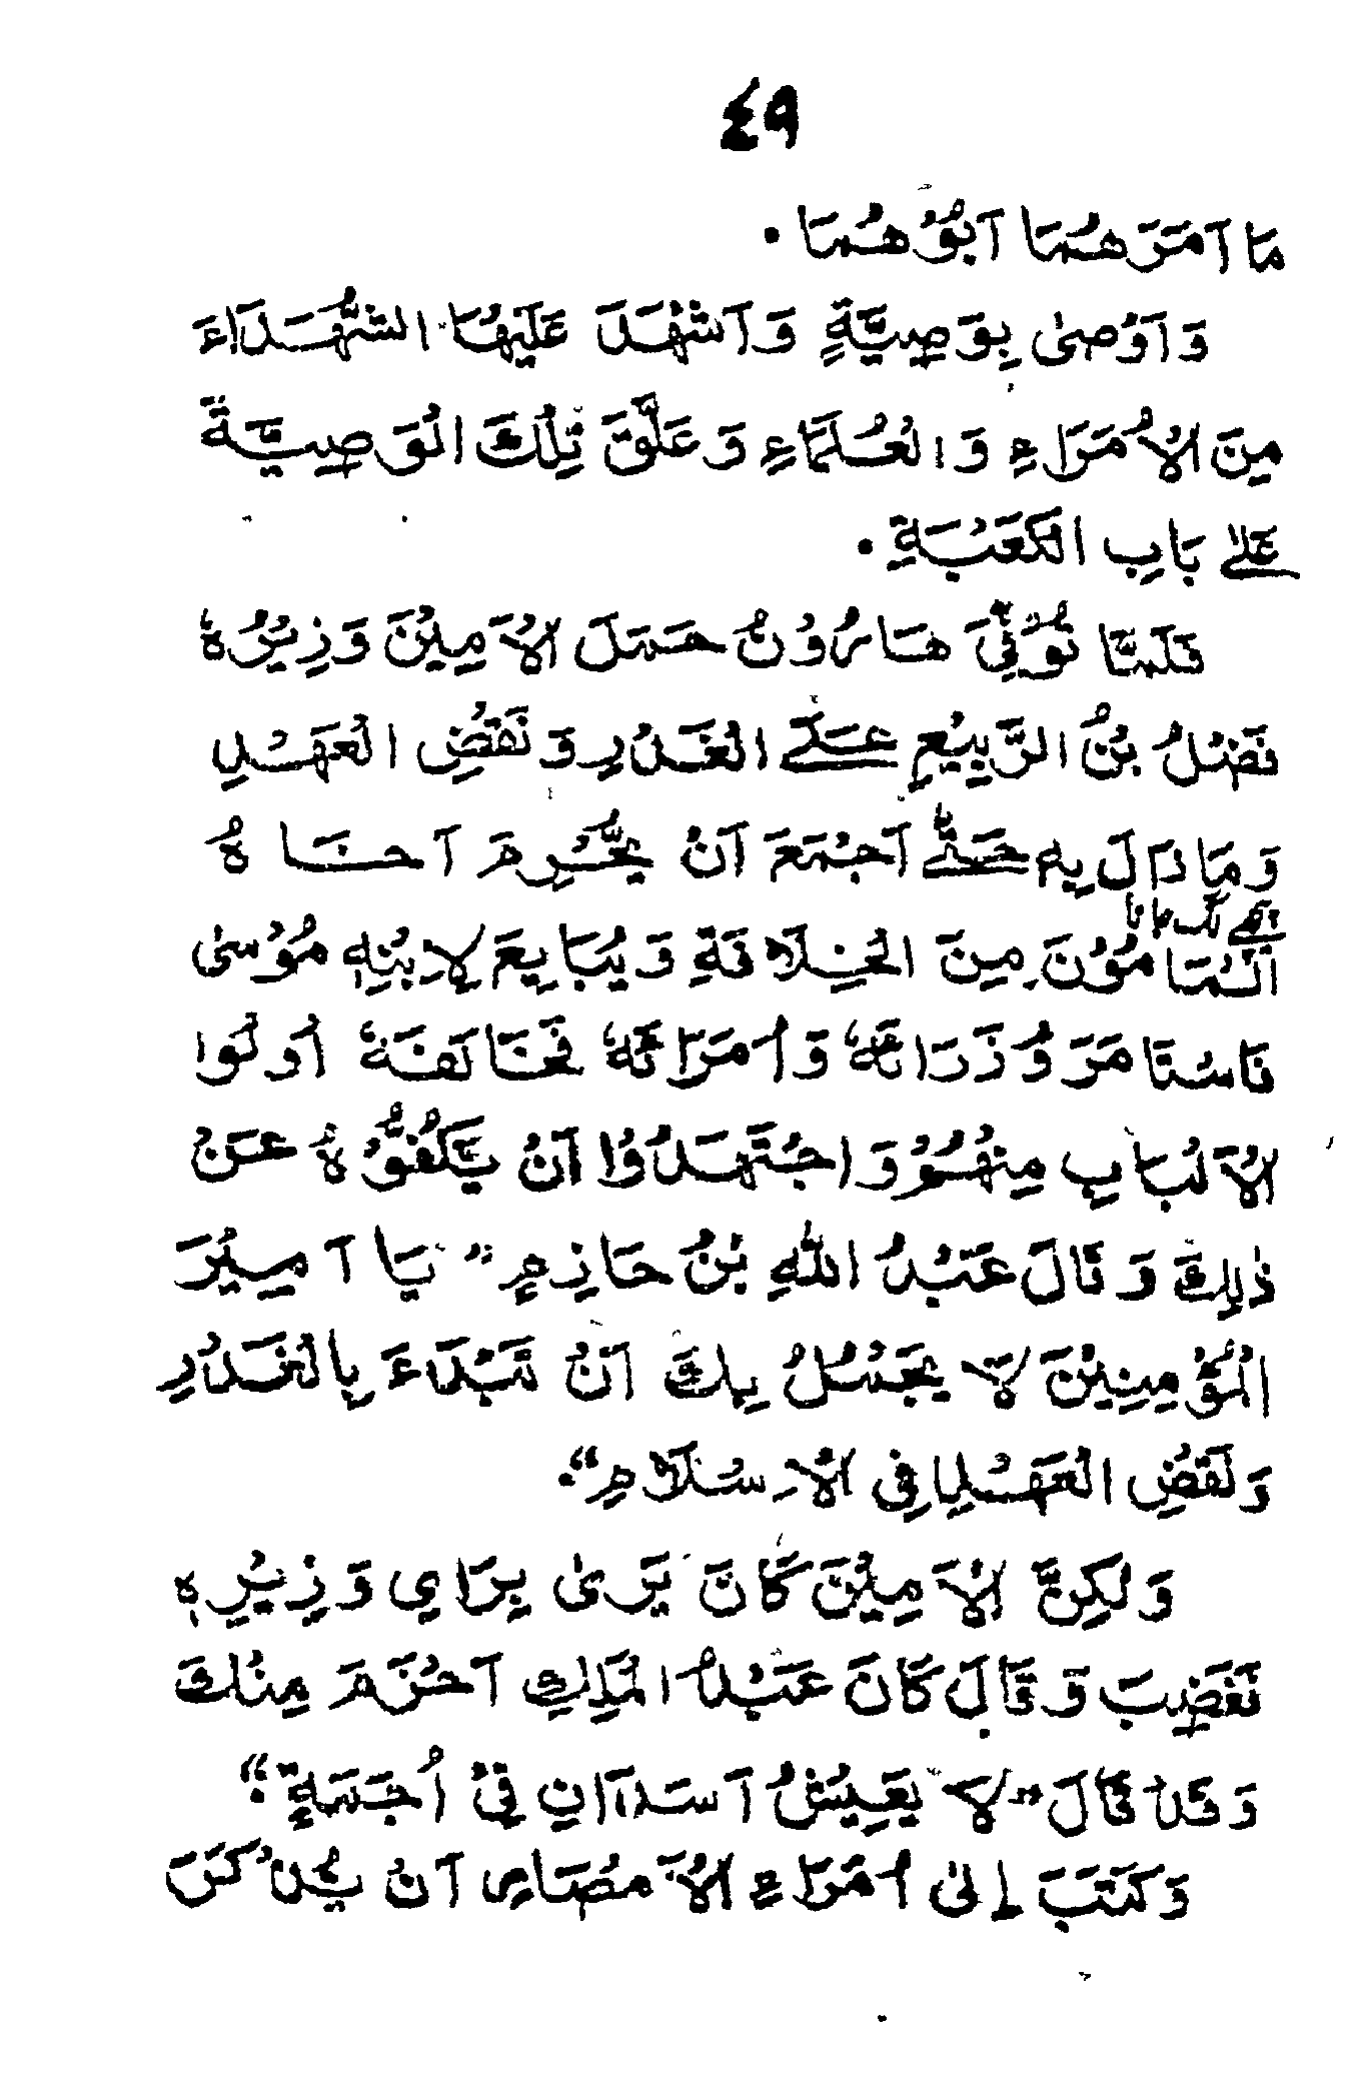 ٤٩
مَا اَمَرَهُمَا اَبُوْهُمَا ۰
وَاَوْصٰی بِوَصِیَّةٍ وَاَشْهَدَ عَلَیْهَا الشُّهَدَاءَ
مِنَ الْاُمَرَاءِ وَالْعُلَمَاءِ وَعَلَّقَ تِلْكَ الْوَصِیَّةَ
عَلٰے بَابِ الْكَعْبَةِ ۰
فَلَمَّا تُوُفِّیَ هَارُوْنُ حَمَلَ الْاَمِیْنَ وَزِیْرُهٗ
فَضْلُ بْنُ الرَّبِیْعِ عَلَے الْغَدْرِ وَنَقْضِ الْعَهْدِ
وَمَا زَالَ بِهٖ حَتّٰے اَجْمَعَ اَنْ یُّحْرِمَ اَخَاهُ
الْمَامُوْنَ مِنَ الْخِلَافَةِ وَیُبَایِعَ لِاِبْنِهٖ مُوْسٰی
فَاسْتَامَرَ وُزَرَائَهٗ وَاُمَرَائَهٗ فَخَالَفَهٗ اُولُوا
الْاَلْبَابِ مِنْهُمْ وَاجْتَهَدُوْا اَنْ یَّكُفُّوْهُ عَنْ
ذٰلِكَ وَقَالَ عَبْدُ اللهِ بْنُ حَازِمٍ "یَا اَمِیْرَ
الْمُؤْمِنِیْنَ لَا یَجْمُلُ بِكَ اَنْ تَبْدَاءَ بِالْغَدْرِ
وَنَقْضِ الْعَهْدِ فِی الْاِسْلَامِ"۔
وَلٰكِنَّ الْاَمِیْنَ كَانَ یَرٰی بِرَایِ وَزِیْرِهٖ
فَغَضِبَ وَقَالَ كَانَ عَبْدُ الْمَلِكِ اَحْزَمَ مِنْكَ
وَقَدْ قَالَ "لَا یَعِیْشُ اَسَدَانِ فِیْ اُجَمَةٍ"۔
وَكَتَبَ اِلٰی اُمَرَاءِ الْاَمْصَارِ اَنْ یُّذْكَرَ